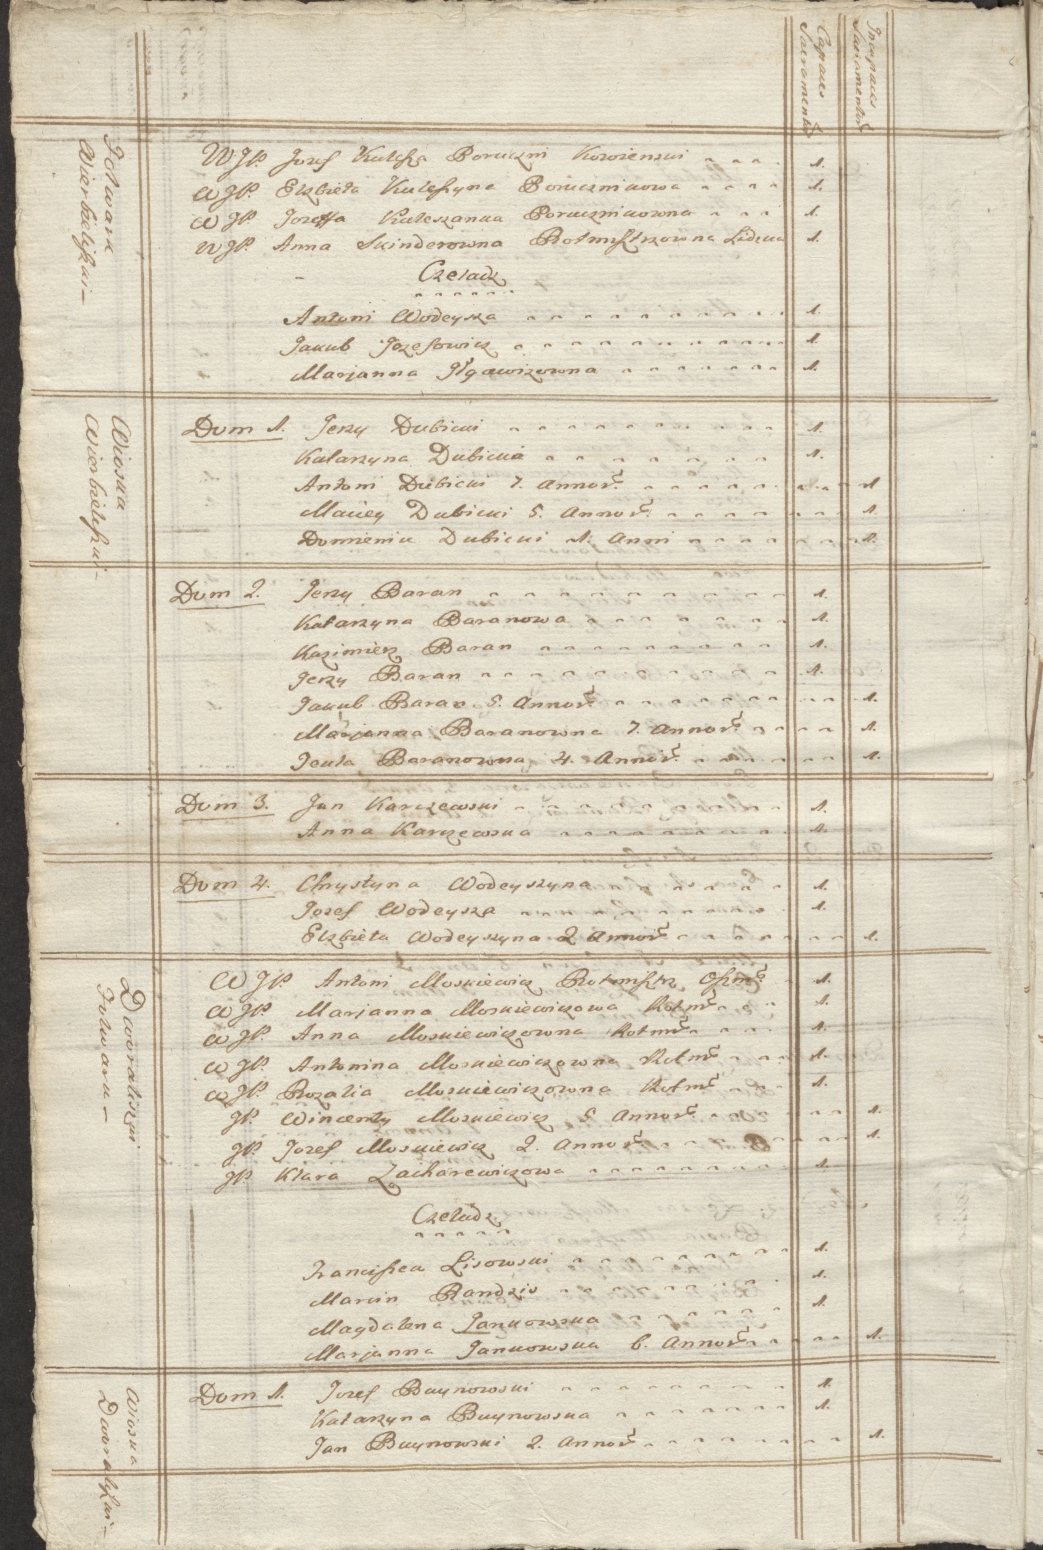 Capaces Sacramentor̃
Incapaces Sacramentor̃
Folwark Wierbieliszki
WJP. Jozef Kulesza Poruczni Kowienski 1.
WJP. Elzbieta Kuleszyna Porucznikowa 1.
WJP. Jozeffa Kuleszanka Porucznikowna 1.
WJP. Anna Skinderowna Rotmistrzowna Lidzka 1.
Czeladz
Antoni Wodeysza 1.
Jakub Jozefowicz 1.
Marjanna 1.
Wioska Wierbieliszki
Dom 1. Jerzy Dubicki 1.
Katarzyna Dubicka 1.
Antoni Dubicki 7. Annor̃ 1
Maciey Dubicki 5. Annor̃ 1.
Dominik Dubicki 1. Anni 1.
Dom 2. Jerzy Baran 1.
Katarzyna Baranowa 1.
Kazimierz Baran 1.
Jerzy Baran 1.
Jakub Baran 5. Annor̃ 1.
Marjanna Baranowna 7. Annor̃ 1.
Baranowna 4. Annor̃ 1.
Dom 3. Jan Karczewski 1.
Anna Karczewska 1.
Dom 4. Chrystyna Wodeyszyna 1.
Jozef Wodeysza 1.
Elzbieta Wodeyszyna 2 Annor̃ 1.
Dawraliszki Folwark
WJP. Antoni Moskiewicz Rotmistrz 1.
WJP. Marjanna Moskiewiczowa Rotm̃ 1.
WJP. Anna Moskiewiczowna Rotm̃ 1.
WJP. Antonina Moskiewiczowna Rotm̃ 1.
WJP. Rozalia Moskiewiczowna Rotm̃ 1.
JP. Wincenty Moskiewicz 5. Annor̃ 1.
JP. Jozef Moskiewicz 2. Annor̃ 1.
JP. Klara Zacharewiczowa 1.
Czeladz
Franciszek Lisowski 1.
Marcin Randzis 1.
Magdalena Jankowska 1.
Marjanna Jankowska 6. Annor̃ 1.
Wioska Dawraliszki
Dom 1. Jozef Buynowski 1.
Katarzyna Buynowska 1.
Jan Buynowski 2. Annor̃ 1.